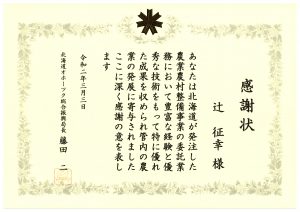 感謝状
辻 征幸 様
あなたは北海道が発注した
農業農村整備事業の委託業
務において豊富な経験と優
秀な技術をもって特に優れ
た成果を収められ管内の農
業の発展に寄与されました
ここに深く感謝の意を表し
ます
令和二年三月三日
北海道オホーツク総合振興局長 藤田 二